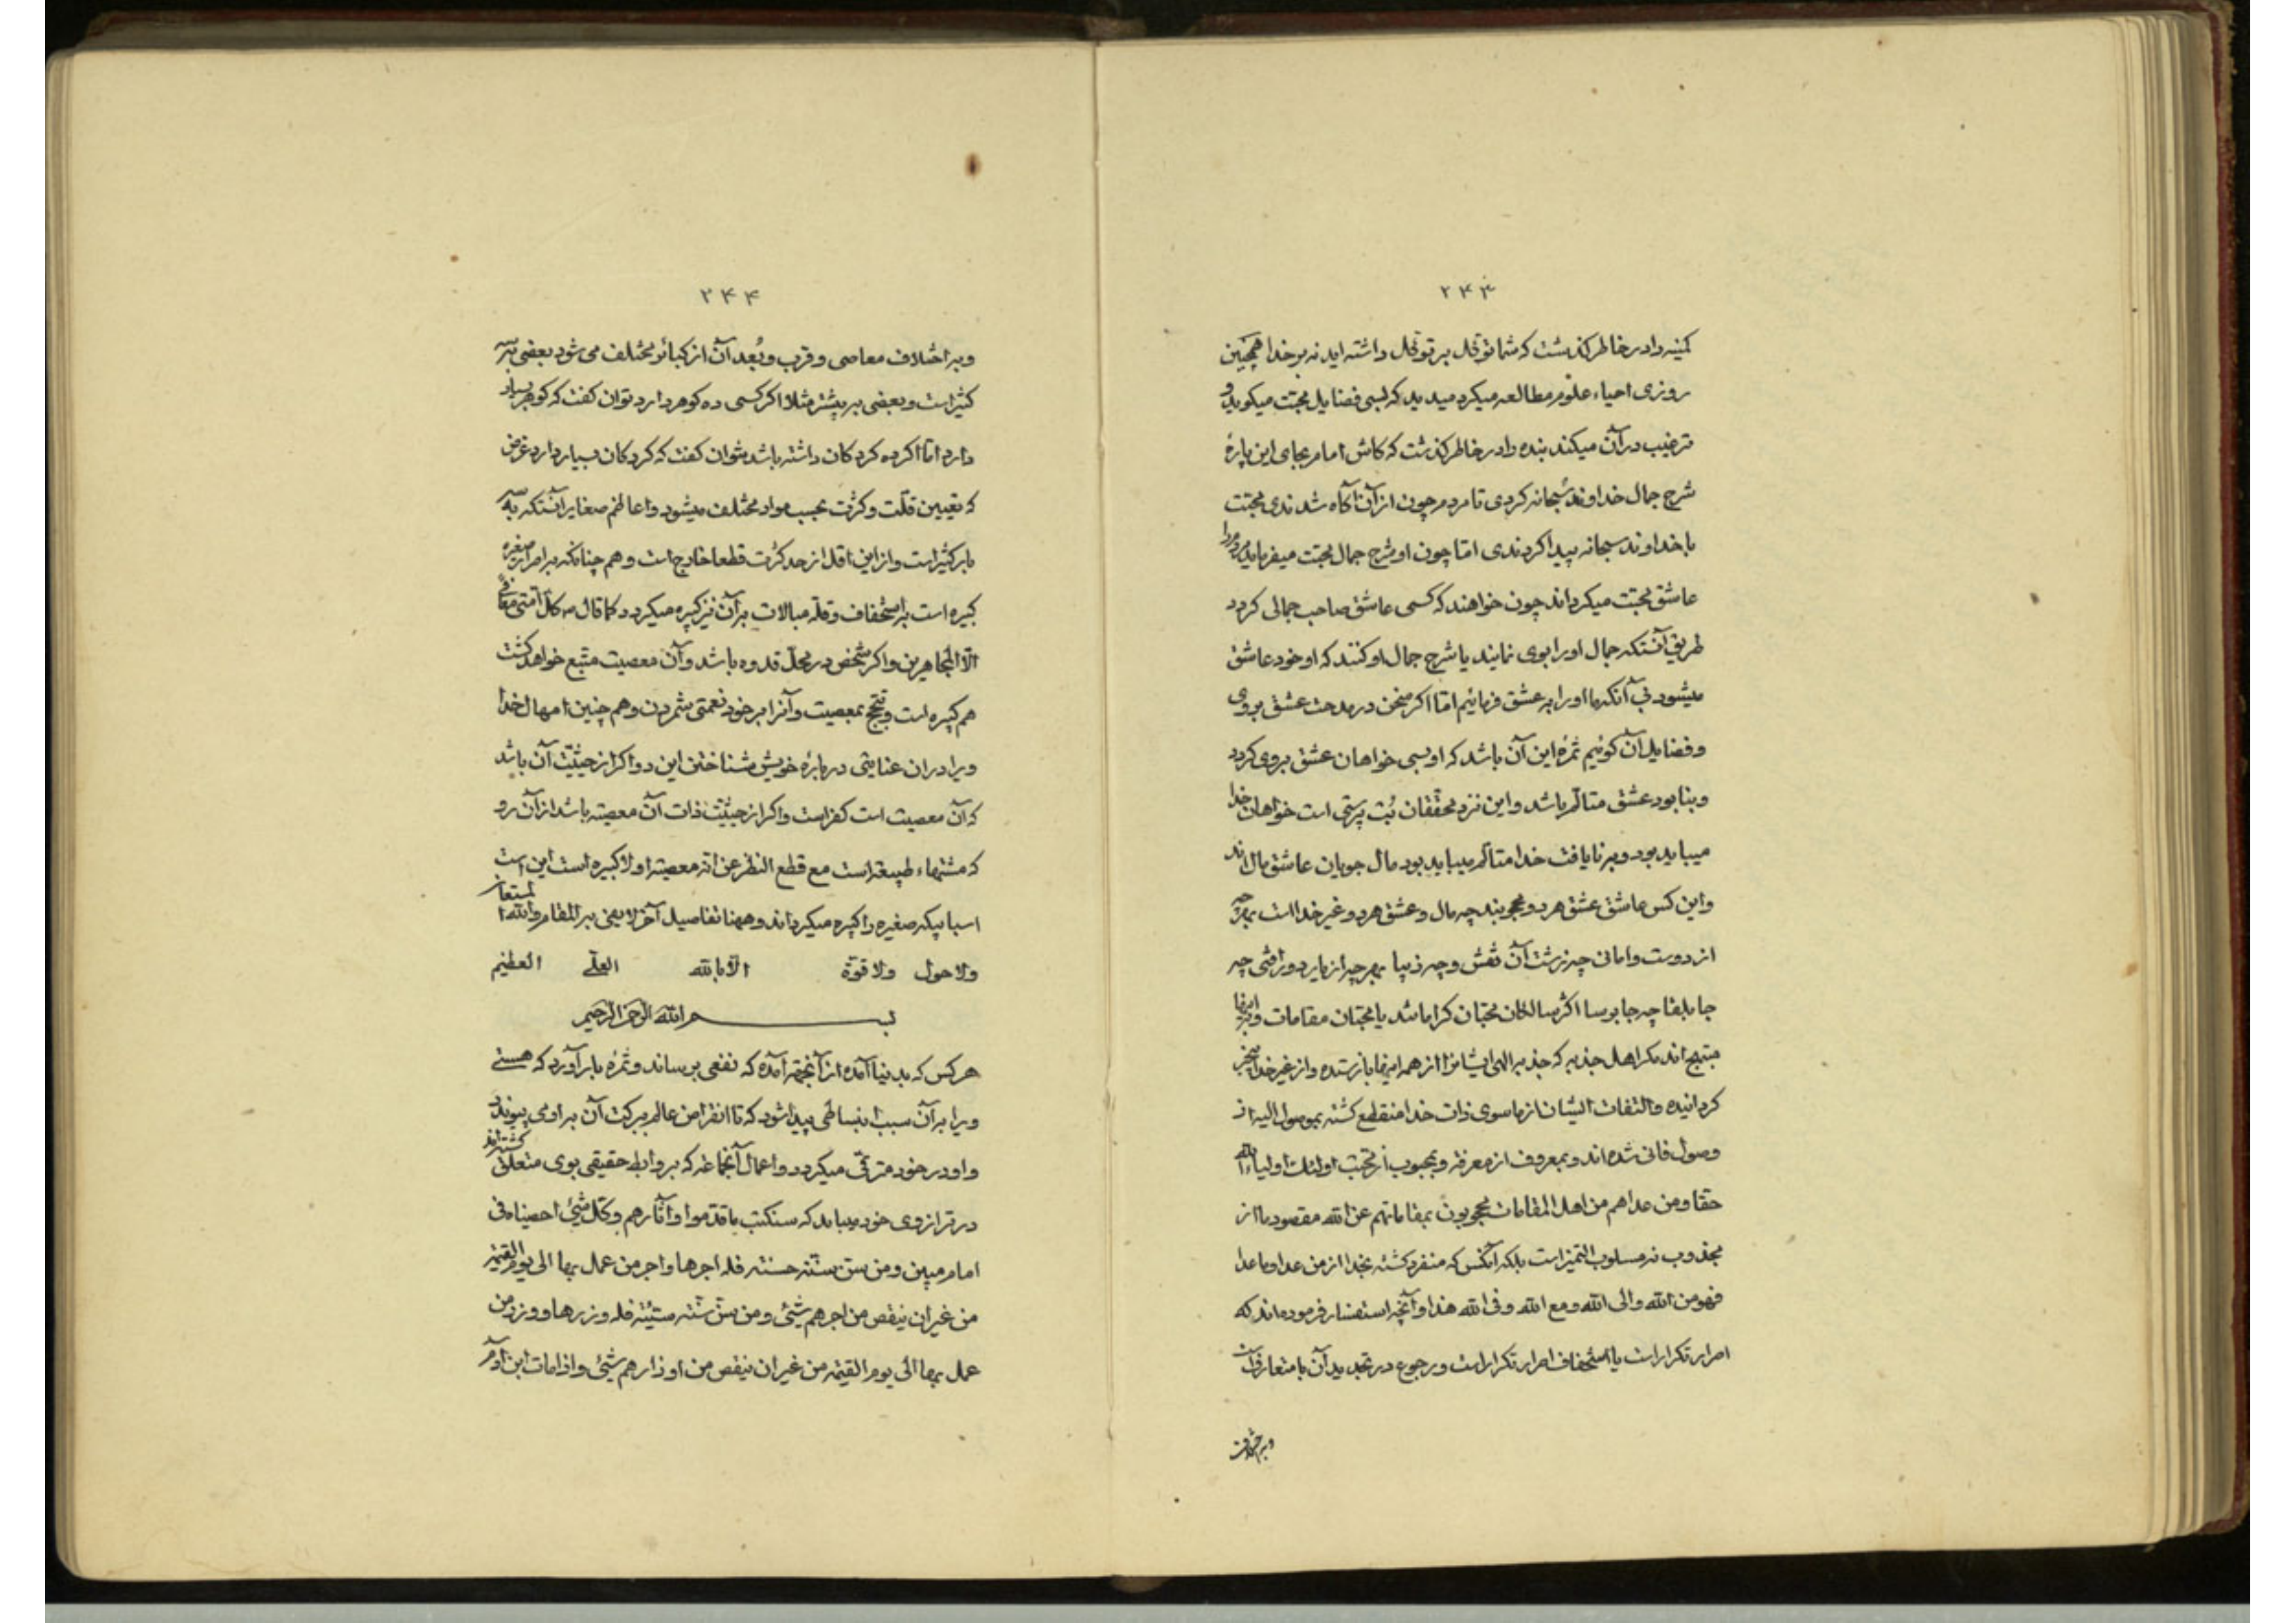 ۲۴۳
کمینه را در خاطر کذشت که شما توکل بر توکل داشته اید نه بر خدا همچنین
روزی احیاء علوم مطالعه میکرد میدید که بسی فضایل محبت میکوید و
ترغیب در آن میکند بنده را در خاطر کذشت که کاش امام بجای این پارهٔ
شرح جمال خداوند سبحانه کردی تا مردم چون از آن آکاه شدندی محبت
با خداوند سبحانه پیدا کردندی اما چون او شرح جمال محبت میفرماید مردم را
عاشق محبت میکرداند چون خواهند که کسی عاشق صاحب جمالی کردد
طریق آنستکه جمال او را بوی نمایند یا شرح جمال او کنند که او خود عاشق
میشود بی آنکه ما او را به عشق فرمائیم اما اکر سخن در مدحت عشق بروی
و فضایل آن کوئیم ثمرهٔ این آن باشد که او بسی خواهان عشق بروی کردد
و بنابود عشق متالم باشد و این نزد محققان بُت پرستی است خواهان خدا
میباید بود و بر نایافت خدا متالم میباید بود مال جویان عاشق مال اند
و این کس عاشق عشق هر دو محجوبند چه مال و عشق هر دو غیر خدا است بهرچه
از دوست وامانی چه زشت آن نقش و چه زیبا بهرچه از یار دور افتی چه
جابلقا چه جابرسا اکثر سالکان محبان کراماتند یا محبان مقامات و باینها
مبتهج اند مکر اهل جذبه که جذبه الهی ایشانرا از همه اینها باز ستده و از غیر خدا متحیر
کردانیده و التفات ایشان از ماسوی ذات خدا منقطع کشته بموصول الیه از
وصول فانی شده اند و بمعروف از معرفة و بمحبوب از محبت اولئك اولیاء الله
حقا و من عداهم من اهل المقامات محجوبون بمقاماتهم عن الله مقصود ما از
مجذوب نه مسلوب التمیز است بلکه آنکس که منفرد کشته بخدا از من عدا و ما عدا
فهو من الله والی الله و مع الله و فی الله هذا و آنچه استفسار فرموده اند که
اصرار تکرار است یا استخفاف اصرار تکرار است و رجوع در تحدید آن با متعارفات
و به اختلاف
۲۴۴
و به اختلاف معاصی و قرب و بُعد آن از کبائر مختلف می شود بعضی به سه
کثیر است و بعضی به بیشتر مثلا اکر کسی ده کوهر دارد توان کفت که کوهر بسیار
دارد اما اکر ده کردکان داشته باشد نتوان کفت که کردکان بسیار دارد غرض
که تعیین قلّت و کثرت بحسب مواد مختلف میشود و اعاظم صغایر آنستکه به سه
بار کثیر است و از این اقل از حد کثرت قطعا خارج است و هم چنانکه به اصرار صغیره
کبیره است به استخفاف و قلة مبالات بر آن نیز کبیره میکردد کما قال ص کل امتی معافی
الا المجاهرین و اکر شخص در محلّ قدوه باشد و آن معصیت متبع خواهد کشت
هم کبیره است و تبجح بمعصیت و آنرا بر خود نعمتی شمردن و هم چنین امهال خدا
ویرا در ان عنایتی در بارهٔ خویش شناختن این دو اکر از حیثیّت آن باشد
که آن معصیت است کفر است و اکر از حیثیّت ذات آن معصیته باشد از آن رو
که مشتهاء طبیعة است مع قطع النظر عن انه معصیته اولا کبیره است این است
اسبابیکه صغیره را کبیره میکرداند و ههنا تفاصیل آخر لا یفی بها المقام والله المستعان
ولا حول ولا قوة الا بالله العلی العظیم
بسم الله الرحمن الرحیم
هر کس که بدنیا آمده از آنجهة آمده که نفعی برساند و ثمرهٔ بار آورد که هستی
ویرا بر آن سبب انبساطی پیدا شود که تا انقراض عالم برکت آن به او می پیوندد
و او در خود مترقّی میکردد و اعمال آنجماعه که بروابط حقیقی بوی متعلق کشته اند
در ترازوی خود میباید که سنکتب ما قدموا و آثارهم و کل شیئ احصیناه فی
امام مبین و من سنّ سنّته حسنته فله اجرها و اجر من عمل بها الی یوم القیمة
من غیر ان ینقص من اجرهم شیئ و من سنّ سنّته سیّئته فله وزرها و وزر من
عمل بها الی یوم القیمة من غیر ان ینقص من اوزارهم شیئ و اذا مات ابن آدم